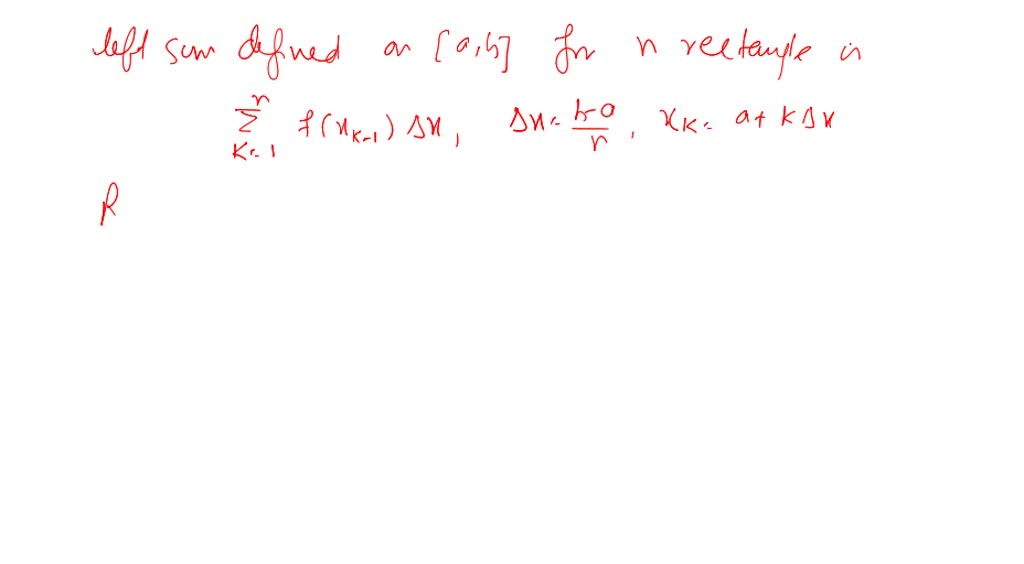 left sum defined on [a,b] for n rectangle is
n
Σ f(x_{k-1}) Δx, Δx = b-a/n, x_k = a + kΔx
k=1
R